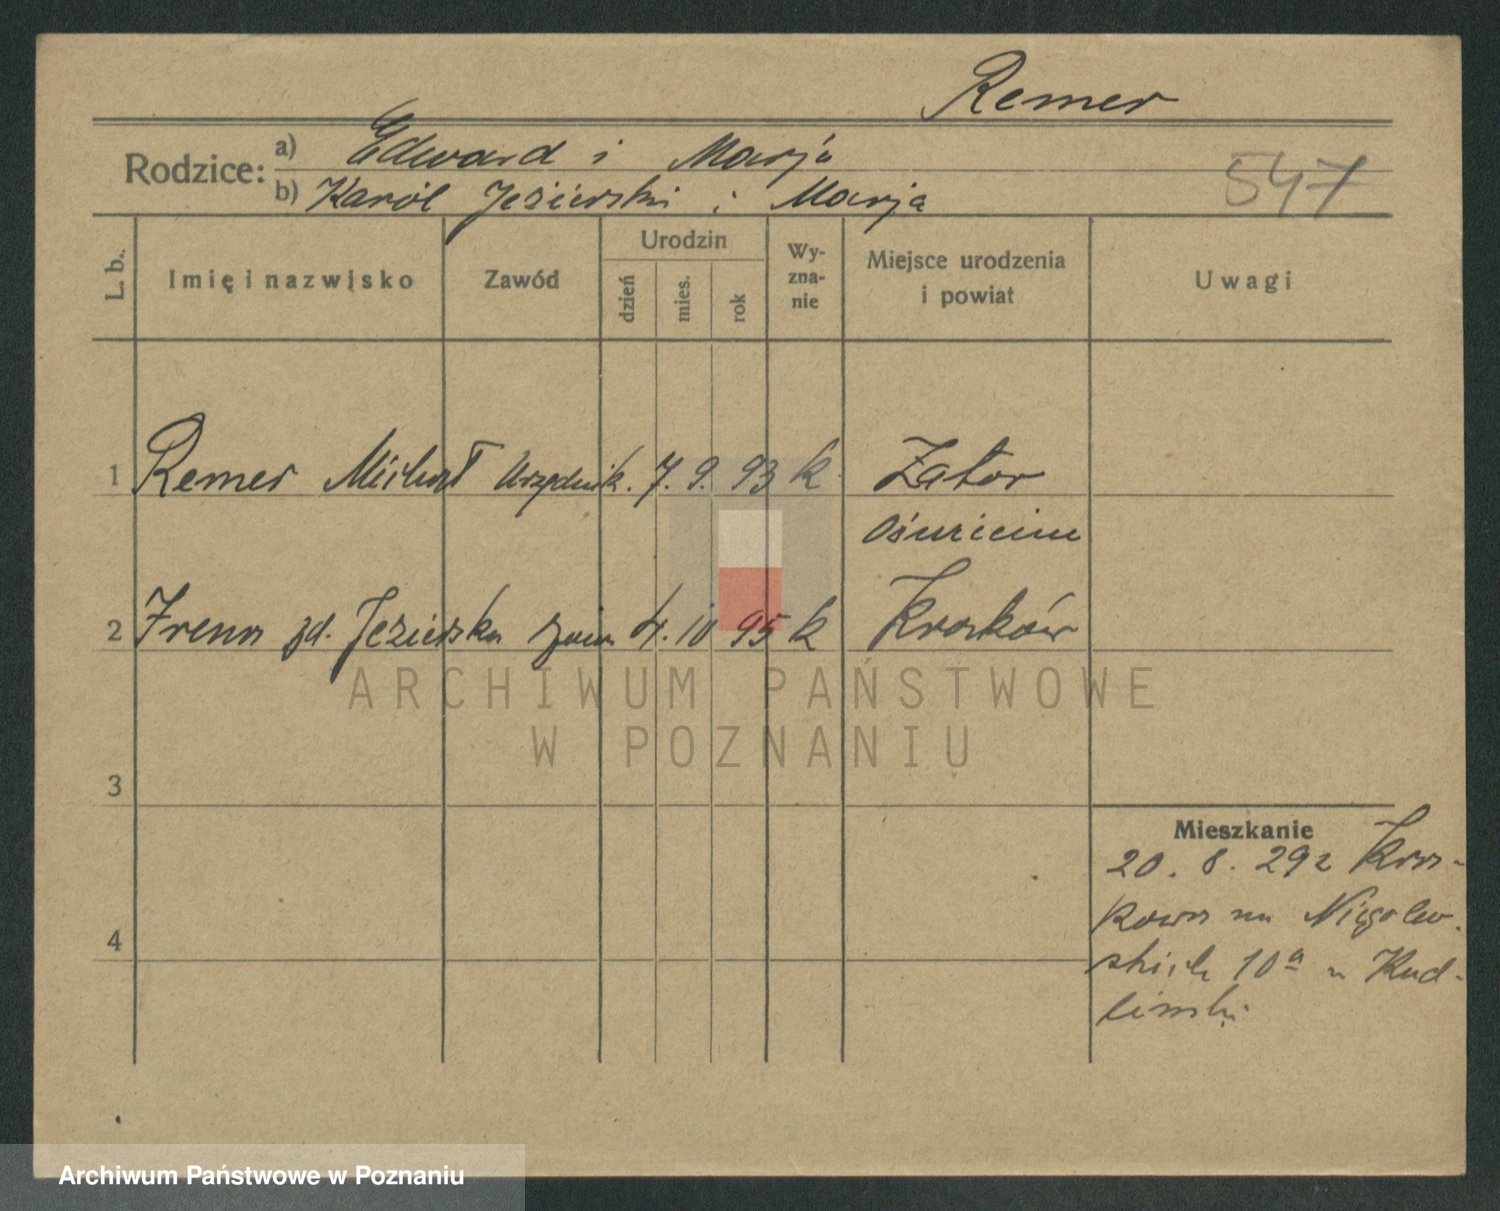 Remer
Rodzice: a) Edward i Marja
b) Karol Jezierski i Marja
547
L. b. Imię i nazwisko Zawód Urodzin dzień mies. rok Wy-zna-nie Miejsce urodzenia i powiat Uwagi
1 Remer Michał Urzędnik. 7. 9. 93 k Zator
Oświęcim
2 Irena zd. Jezierska żona 4. 10 95 k Kraków
ARCHIWUM PAŃSTWOWE
W POZNANIU
3
Mieszkanie
20. 8. 29 z Kra-
kowa na Niegolew.
skich 10a u Kud-
liński
4
Archiwum Państwowe w Poznaniu